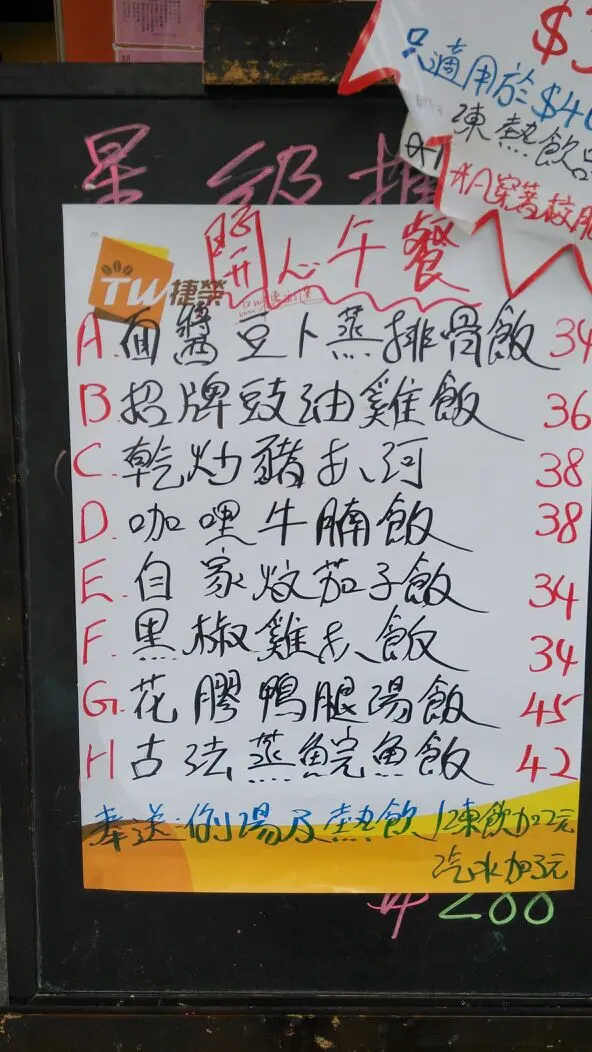 $3
只適用於$40
凍熱飲品
穿著校服
星級推
開心午餐
TW捷榮
A 面醬豆卜蒸排骨飯 34
B 招牌豉油雞飯 36
C. 乾炒豬扒河 38
D. 咖哩牛腩飯 38
E. 自家炆茄子飯 34
F. 黑椒雞扒飯 34
G. 花膠鴨腿湯飯 45
H 古法蒸鯇魚飯 42
奉送:例湯及熱飲/凍飲加2元
汽水加3元
200